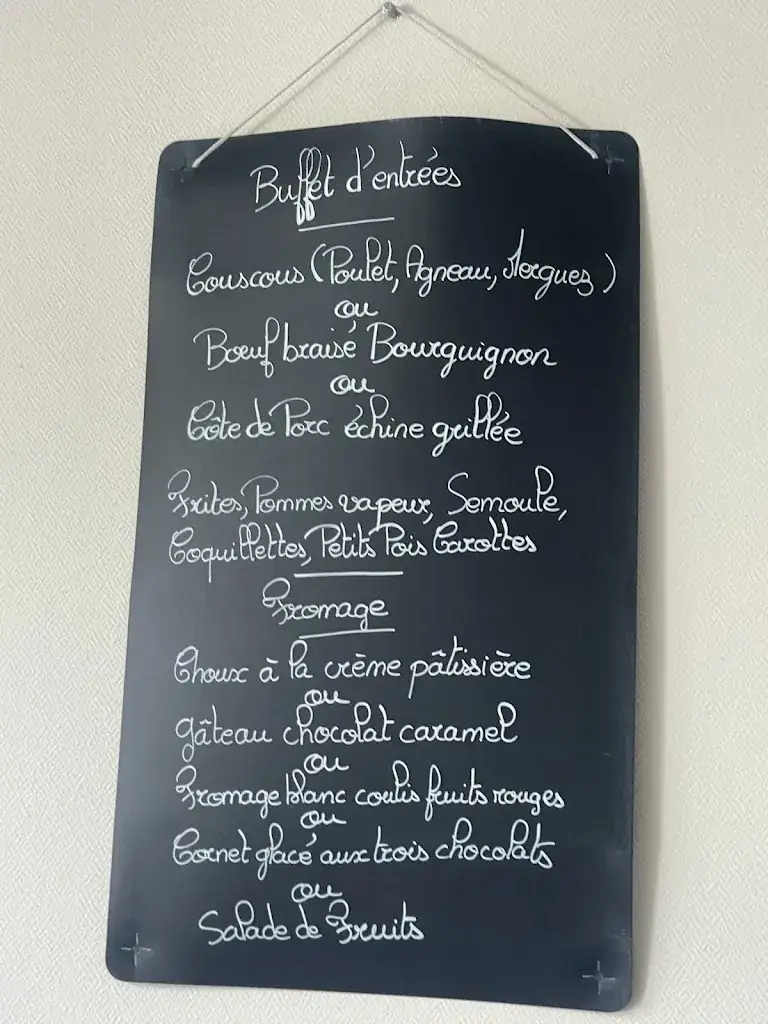 Buffet d'entrées
Couscous (Poulet, Agneau, Merguez)
ou
Bœuf braisé Bourguignon
ou
Côte de Porc échine grillée
Frites, Pommes vapeur, Semoule,
Coquillettes, Petits Pois Carottes
Fromage
Choux à la crème pâtissière
ou
gâteau chocolat caramel
ou
Fromage blanc coulis fruits rouges
ou
Cornet glacé aux trois chocolats
ou
Salade de Fruits